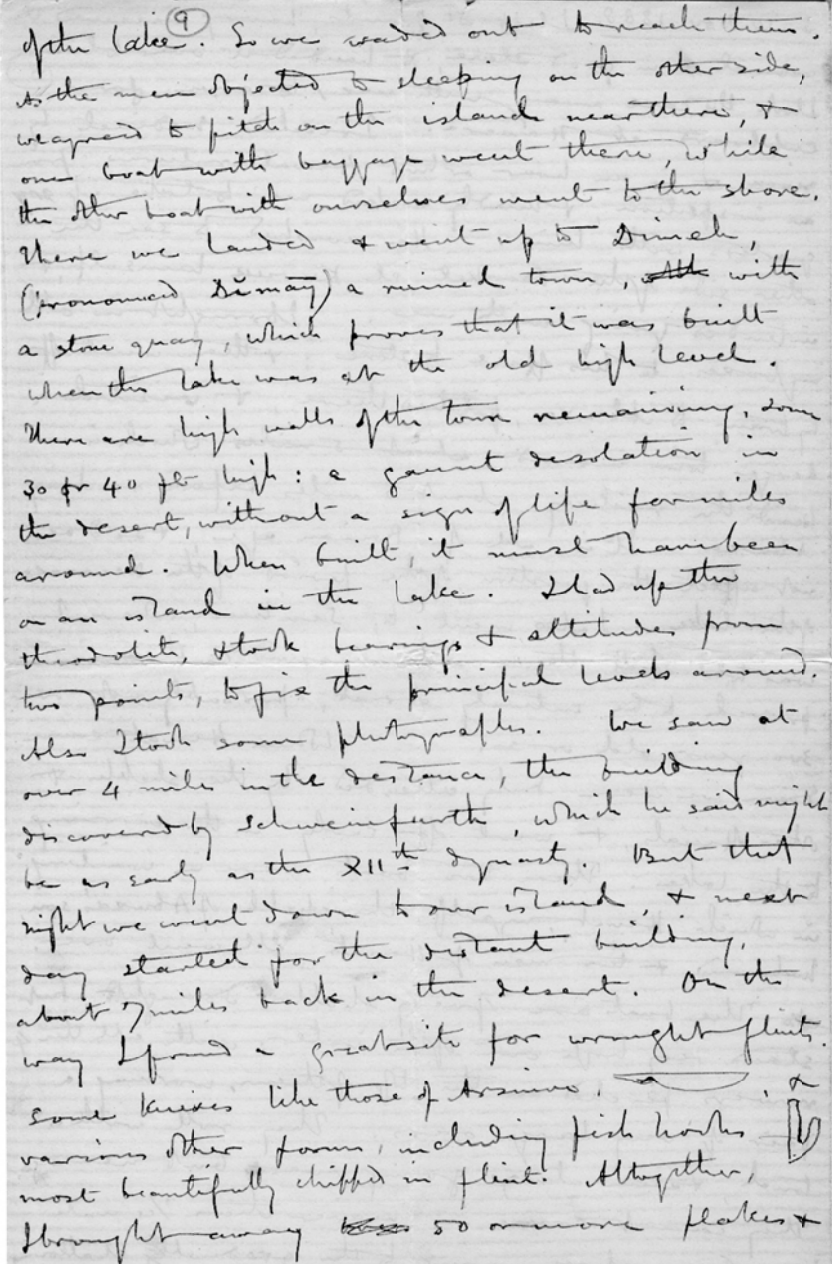 9
of the lake. So we waded out to reach them.
As the men objected to sleeping on the other side,
we agreed to pitch on the island near there, &
one boat with baggage went there, while
the other boat with ourselves went to the shore.
There we landed & went up to Dimeh,
(pronounced Dĭmāy) a ruined town, with
a stone quay, which proves that it was built
when the lake was at the old high level.
There are high walls of the town remaining, some
30 or 40 ft high: a gaunt desolation in
the desert, without a sign of life for miles
around. When built, it must have been
on an island in the lake. I had up the
theodolite, & took bearings & altitudes from
two points, to fix the principal levels around.
Also I took some photographs. We saw at
over 4 miles in the distance, the building
discovered by Schweinfurth, which he said might
be as early as the XIIth dynasty. But that
night we went down to our island, & next
day started for the distant building,
about 7 miles back in the desert. On the
way I found a great site for wrought flints.
some knives like those of Arsinoe. , &
various other forms, including fish hooks
most beautifully chipped in flint. Altogether,
I brought away 50 or more flakes &